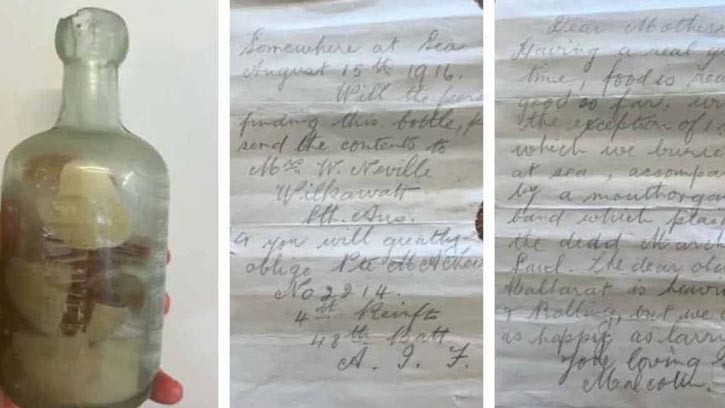 Somewhere at Sea
August 15th 1916.
Will the
finding this bottle,
send the contents to
Mrs W. Neville
Wilkawatt
Sth. Aus.
& you will greatly
oblige Pte M A
No 2214.
4th Reinft
48th Batt
A. I. F.
Dear Mother
Having a real
time, food is
good so far,
the exception of
which we
at sea,
by a mouthorgan
band which
the dead
Saul. The dear
Ballarat is
& Rolling, but we
as happy as larry
Your loving
Malcolm.